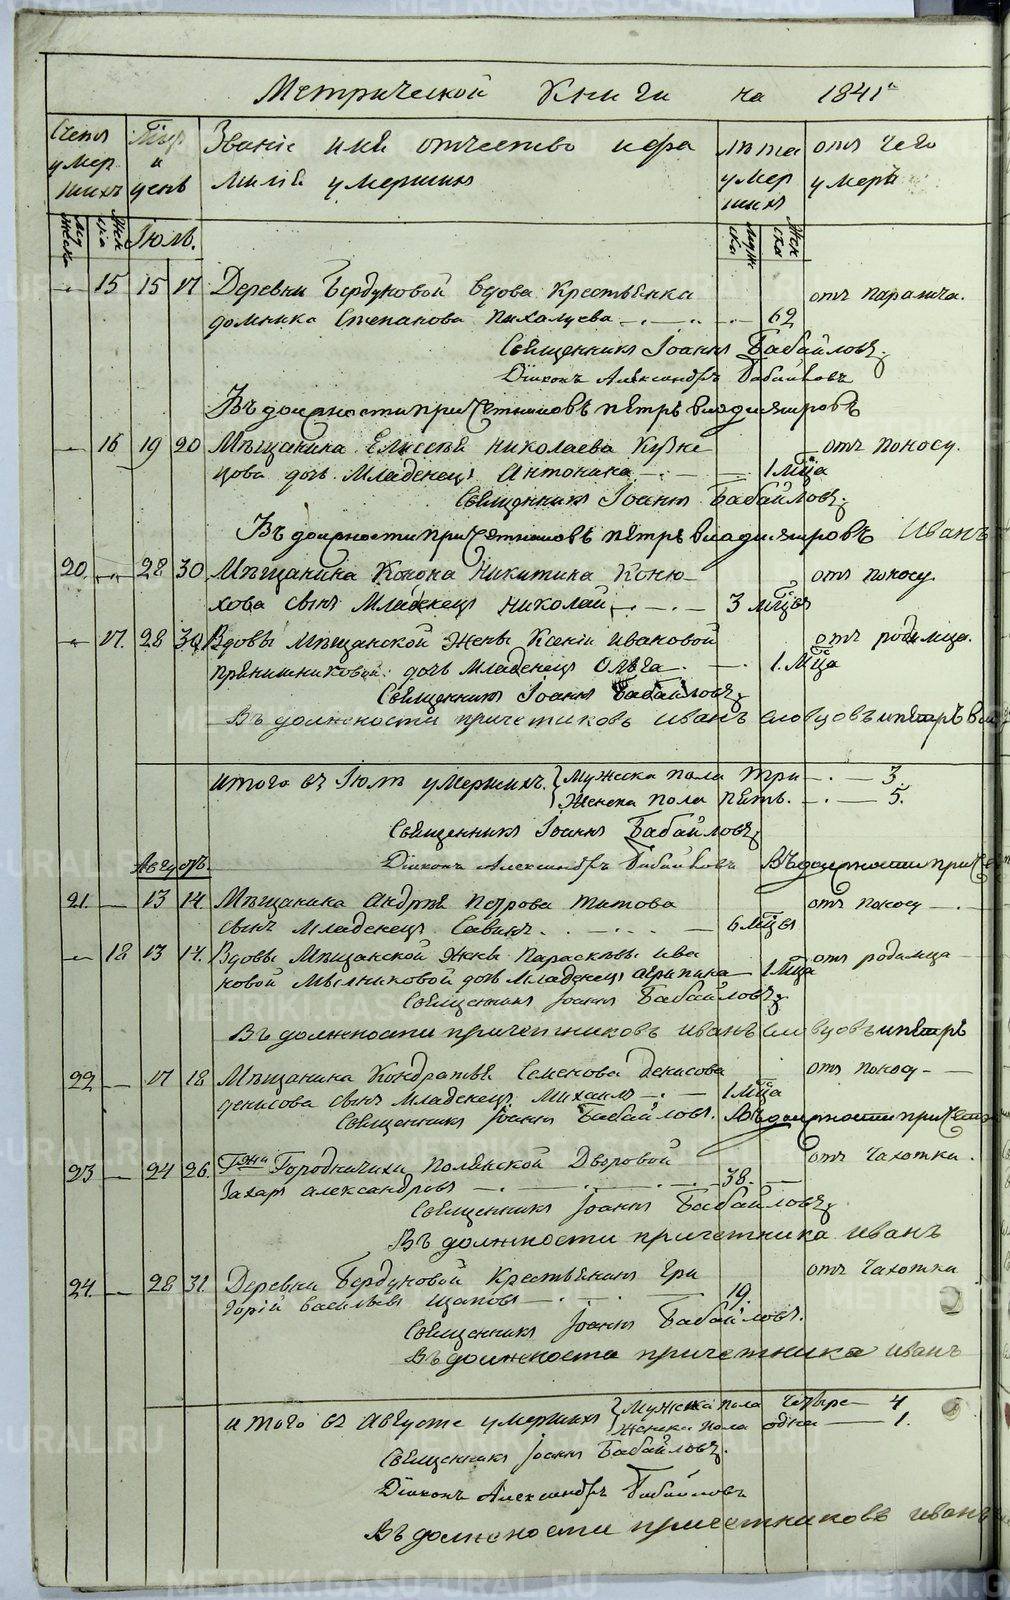 Метрической Книги на 1841й
Счетъ умершихъ
Мцъ и день
Званіе имя отчество и фамилія умершихъ
лѣта умершихъ
отъ чего умеръ
мужеска
женска
Іюль.
мужска
женска
15 15 17 Деревни Бердуковой вдова крестьянка отъ паралича.
домника Степанова Пихалуева 62
Священникъ Іоаннъ Бабайловъ.
Діаконъ Александръ Бабайловъ
Въ должности причетниковъ петръ владимировъ
16 19 20 Мѣщанина Елисея Николаева Кузне отъ поносу.
цова дочь Младенецъ Антонина 1 мца
Священникъ Іоаннъ Бабайловъ.
Въ должности причетниковъ петръ владимировъ Иванъ
20. 28 30 Мѣщанина Конона Никитина Коню отъ поносу.
хова сынъ Младенецъ Николай 3 мцы
17. 28 30 Вдовы мѣщанской жены Ксеніи Ивановой отъ родимца.
прянишниковой дочь младенецъ Ольга 1. мца
Священникъ Іоаннъ Бабайловъ
Въ должности причетиковъ иванъ словцовъ и петръ
итого въ Іюлѣ умершихъ. Мужеска пола три 3
Женска пола пять. 5.
Священникъ Іоаннъ Бабайловъ
Діаконъ Александръ Бабайловъ Въ должности
Августъ.
21. 13 14. Мѣщанина Андрея Петрова Титова отъ поносу
сынъ младенецъ Савинъ. 6 мцы
18 13 14. Вдовы Мѣщанской Жены Парасковьи Ива отъ родимца
новой Мѣлниковой дочь младенецъ агрипина 1 мца
Священникъ Іоаннъ Бабайловъ
Въ должности причетниковъ иванъ словцовъ и петръ
22 17 18 Мѣщанина Кондратья Семенова Денисова отъ поносу
денисова сынъ младенецъ Михаилъ 1 мца
Священникъ Іоаннъ Бабайловъ. Въ должности
23 24 26. Гжи Городничихи Полянской Дворовой отъ чахотки.
Захаръ александровъ 38.
Священникъ Іоаннъ Бабайловъ
Въ должности причетника иванъ
24. 28 31. Деревни Бердуковой Крестьянинъ Гри отъ чахотки
горій васильевъ щаповъ 19.
Священникъ Іоаннъ Бабайловъ.
Въ должности причетника иванъ
итого въ Августе умершихъ Мужеска пола четыре 4
Женска пола одна 1.
Священникъ Іоаннъ Бабайловъ.
Діаконъ Александръ Бабайловъ
Въ должности причетниковъ иванъ
METRIKI.GASO-URAL.RU